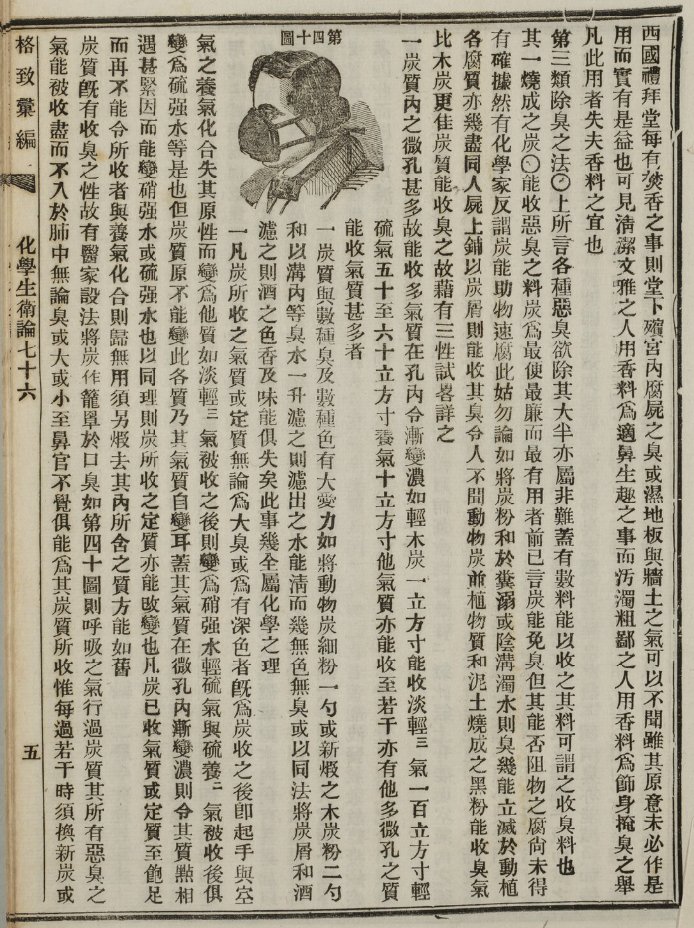 西國禮拜堂每有焚香之事則堂下殯宮內腐屍之臭或濕地板與牆土之氣可以不聞雖其原意未必作是
用而實有是益也可見清潔文雅之人用香料爲適鼻生趣之事而汚濁粗鄙之人用香料爲飾身掩臭之舉
凡此用者失夫香料之宜也
第三類除臭之法〇上所言各種惡臭欲除其大半亦屬非難蓋有數料能以收之其料可謂之收臭料也
其一燒成之炭〇能收惡臭之料炭爲最便最廉而最有用者前已言炭能免臭但其能否阻物之腐尙未得
有確據然有化學家反謂炭能助物速腐此姑勿論如將炭粉和於糞溺或陰溝濁水則臭幾能立滅於動植
各腐質亦幾盡同人屍上鋪以炭屑則能收其臭令人不聞動物炭並植物質和泥土燒成之黑粉能收臭氣
比木炭更佳炭質能收臭之故藉有三性試畧詳之
一炭質內之微孔甚多故能收多氣質在孔內令漸變濃如輕木炭一立方寸能收淡輕三氣一百立方寸輕
硫氣五十至六十立方寸養氣十立方寸他氣質亦能收至若干亦有他多微孔之質
能收氣質甚多者
一炭質與數種臭及數種色有大愛力如將動物炭細粉一勺或新煅之木炭粉二勺
和以溝內等臭水一升濾之則濾出之水能淸而幾無色無臭或以同法將炭屑和酒
濾之則酒之色香及味能俱失矣此事幾全屬化學之理
一凡炭所收之氣質或定質無論爲大臭或爲有深色者旣爲炭收之後卽起手與空
第四十圖
氣之養氣化合失其原性而變爲他質如淡輕三氣被收之後則變爲硝强水輕硫氣與硫養二氣被收後俱
變爲硫强水等是也但炭質原不能變此各質乃其氣質自變耳蓋其氣質在微孔內漸變濃則令其質點相
遇甚緊因而能變硝强水或硫强水也以同理則炭所收之定質亦能改變也凡炭已收氣質或定質至飽足
而再不能令所收者與養氣化合則歸無用須另煅去其內所含之質方能如舊
炭質旣有收臭之性故有醫家設法將炭作籠罩於口臭如第四十圖則呼吸之氣行過炭質其所有惡臭之
氣能被收盡而不入於肺中無論臭或大或小至鼻官不覺俱能爲其炭質所收惟每過若干時須換新炭或
格致彙編
化學生衛論七十六
五